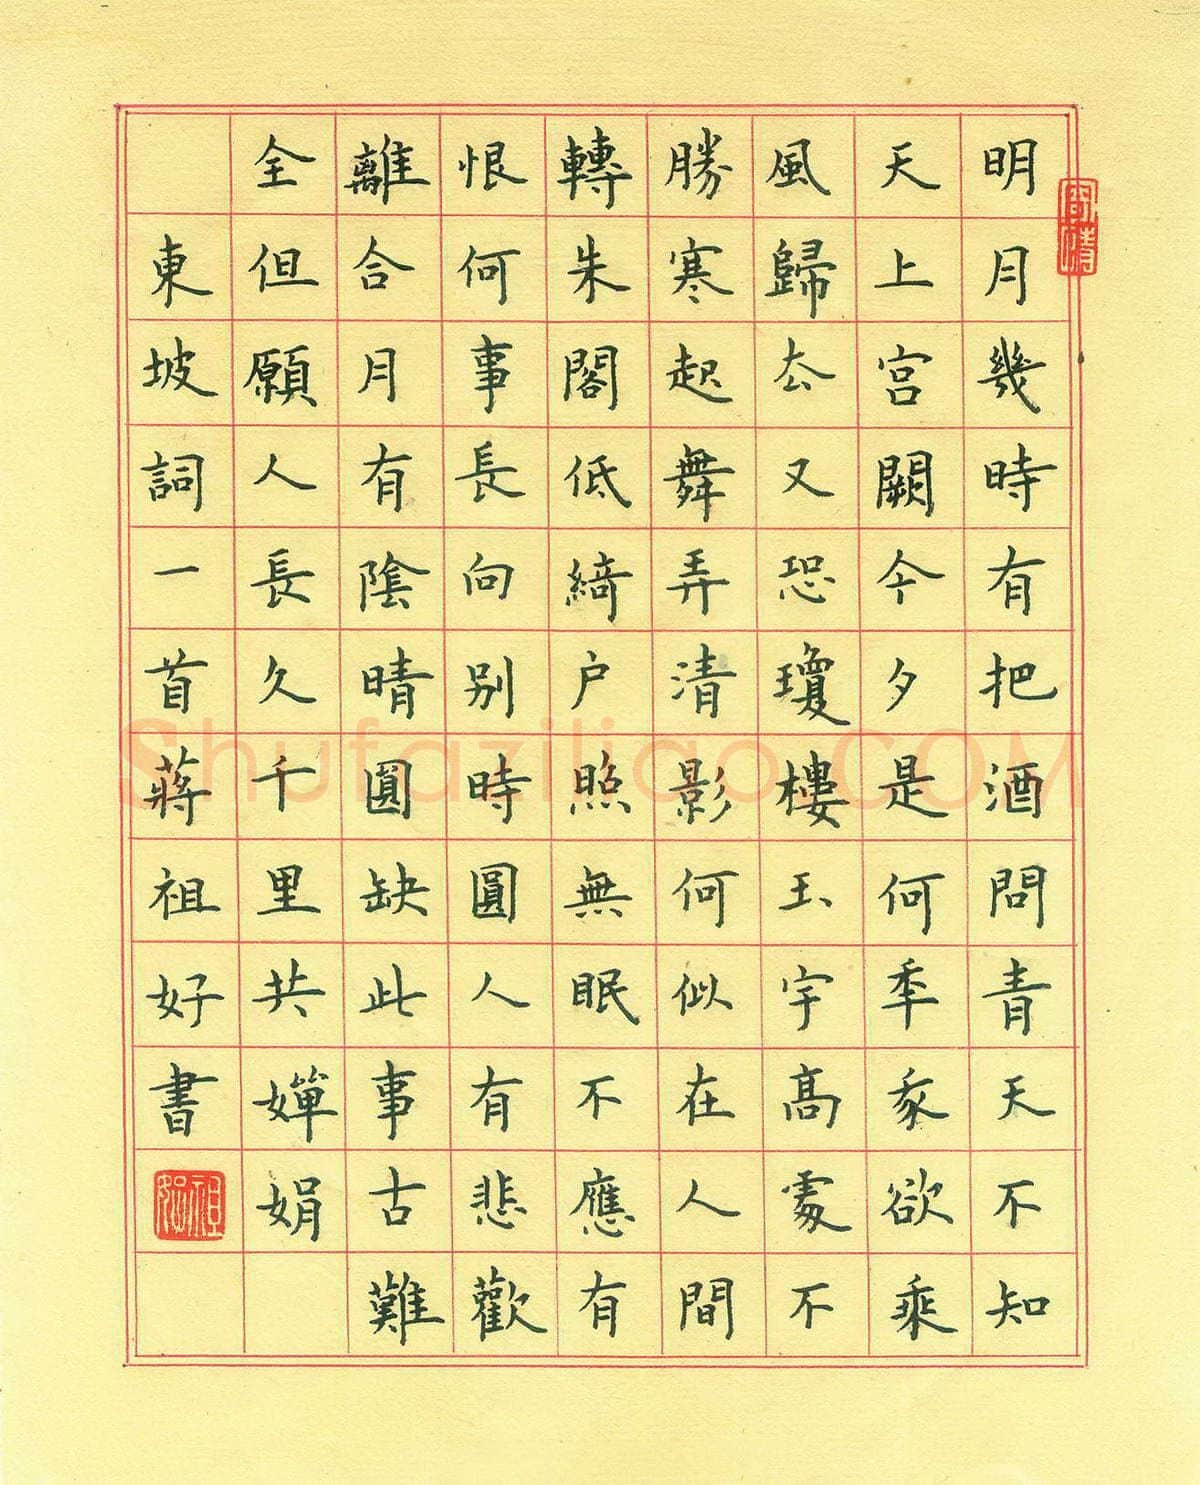 明月幾時有把酒問青天不知
天上宮闕今夕是何年我欲乘
風歸去又恐瓊樓玉宇高處不
勝寒起舞弄清影何似在人間
轉朱閣低綺户照無眠不應有
恨何事長向别時圓人有悲歡
離合月有陰晴圓缺此事古難
全但願人長久千里共嬋娟
東坡詞一首蔣祖好書
Shufaziliao.COM